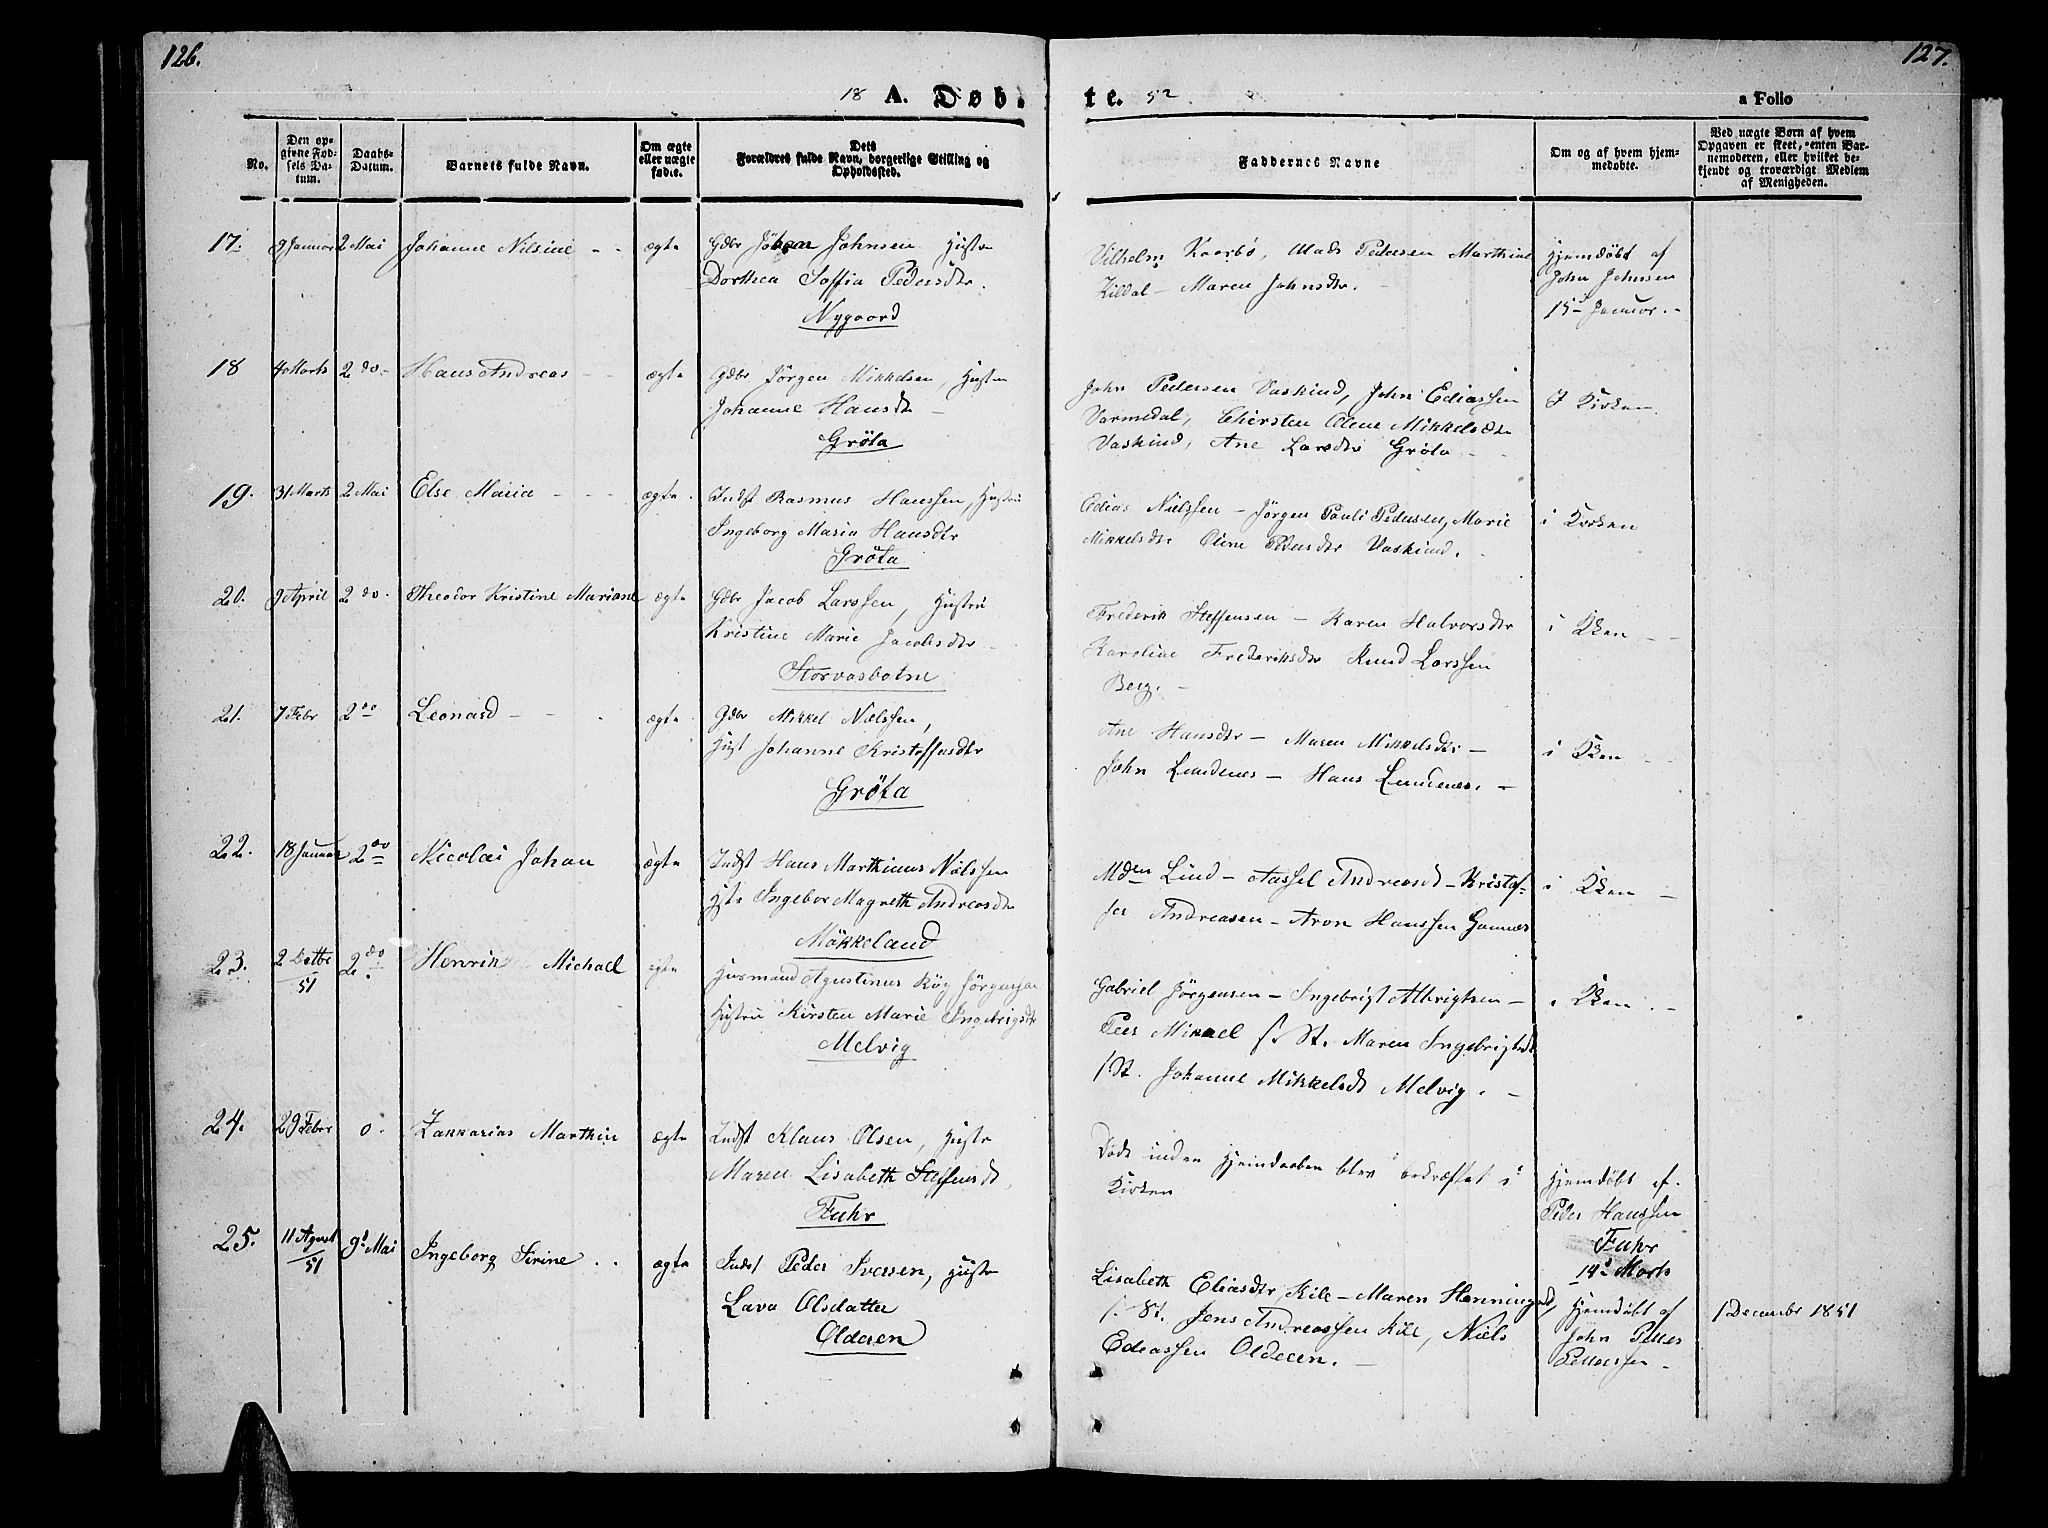 126.
127.
18 A. Døb-
te. 52
a Folio
No.
Den op-
givne Fød-
sels Da-
tum.
Daabs-
Datum.
Barnets fulde Navn.
Om ægte
eller uægte
født.
Dets
Forældres fulde Navn, borgerlige Stilling og
Opholdssted.
Faddernes Navne
Om og af hvem hjem-
medøbte.
Ved uægte Børn af hvem
Opgaven er skeet, enten Bar-
nemoderen, eller hvilket be-
kjendt og troværdigt Medlem
af Menigheden.
17. 9 Januar 2 Mai Johanne Nilsine - - ægte Gdbr Johan Johnsen Hustru
Dorthea Soffia Pedersdtr.
Nygaard
Vilhelm Kaarbø, Mads Pedersen Marthine
Kildal - Maren Johnsdtr. -
Hjemdøbt af
John Johnsen
15 Januar. -
18 4 Marts 2 do - Hans Andreas - - ægte Gdbr Jörgen Mikkelsen, Hustru
Johanne Hansdtr -
Gröta
John Pedersen Vaskind, John Ediassen
Varmedal, Chirsten Olene Mikkelsdtr
Vaskind, Ane Larsdtr Gröta - -
I Kirken.
19. 31 Marts 2 Mai Else Maria - - - ægte. Indst Rasmus Hanssen, Hustru
Ingeborg Maria Hansdtr
Gröta
Edias Nielssen - Jörgen Pauli Pedersen, Marie
Mikkelsdtr Oline Pedersdtr Vaskind. -
i Kirken
20. 9 April 2 do. Theodor Kristine Mariane ægte Gdbr Jacob Larssen, Hustru
Kristine Marie Jacobsdtr -
Storvasbotne
Frederik Steffensen - Karen Halvorsdtr
Karoline Frederiksdtr Knud Larssen
Berg. -
i Kken - -
21. 7 Febr 2 do Leonard - - - ægte. Gdbr Mikkel Nielssen,
Hust Johanne Kristoffersdtr
Gröta
Ane Hansdtr - Maren Mikkelsdtr -
John Lundenes - Hans Lundenes. -
i Kken - -
22. 18 Januar 2 do Nicolai Johan ægte Indst Hans Marthinus Nielssen
Hst. Ingebor Magreth Andreasdtr
Møkkeland
Mdm Lind - Aassel Andreasd - Kristof-
fer Andreasen - Aron Hanssen Gannes
i Kken -
23. 2 51 2 do. Henrik Michael ægte Husmand Agustinus Köy Jörgensen
Hustru Kirsten Marie Ingebrigdtr
Melvig
Gabriel Jörgensen - Ingebrigt Albrigtsen -
Peer Mikael f. St. Maren Ingebrigtsdt
f St. Johanne Mikkelsdt Melvig. -
i Kken. -
24. 29 Febr 0. Zakkarias Marthin ægte Indst Klaus Olsen, Hustr
Maren Lisabeth Steffensdt.
Fuhr
Døde inden Hjemdaaben blev bekræftet i
Kirken
Hjemdöbt af.
Peder Hanssen
Fuhr
14 Marts
25. 11 Agust 51 9 Mai Ingeborg Sirine . . ægte Indst Peder Iversen, Hustr
Lava Olsdatter
Olderen
Lisabeth Eliasdtr Kile - Maren Henningsd,
f. St. Jens Andreassen Kile, Niels
Ediassen Olderen. -
Hjemdøbt af
John Petter
Pettersen -
1 December 1851